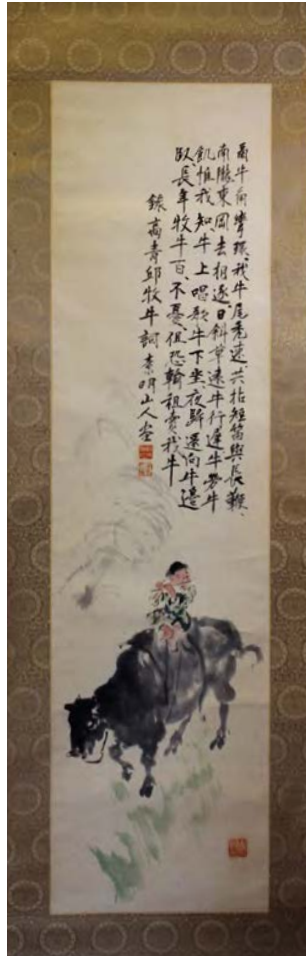 爾牛角彎環、我牛尾禿速共拈短笛與長鞭、
南隴東岡去相逐日斜草遠牛行遲牛勞牛
飢惟我知、牛上唱歌牛下坐、夜歸還向牛邊
臥、長年牧牛百、不憂、但恐輸租賣我牛
錄高青邱牧牛詞素明山人